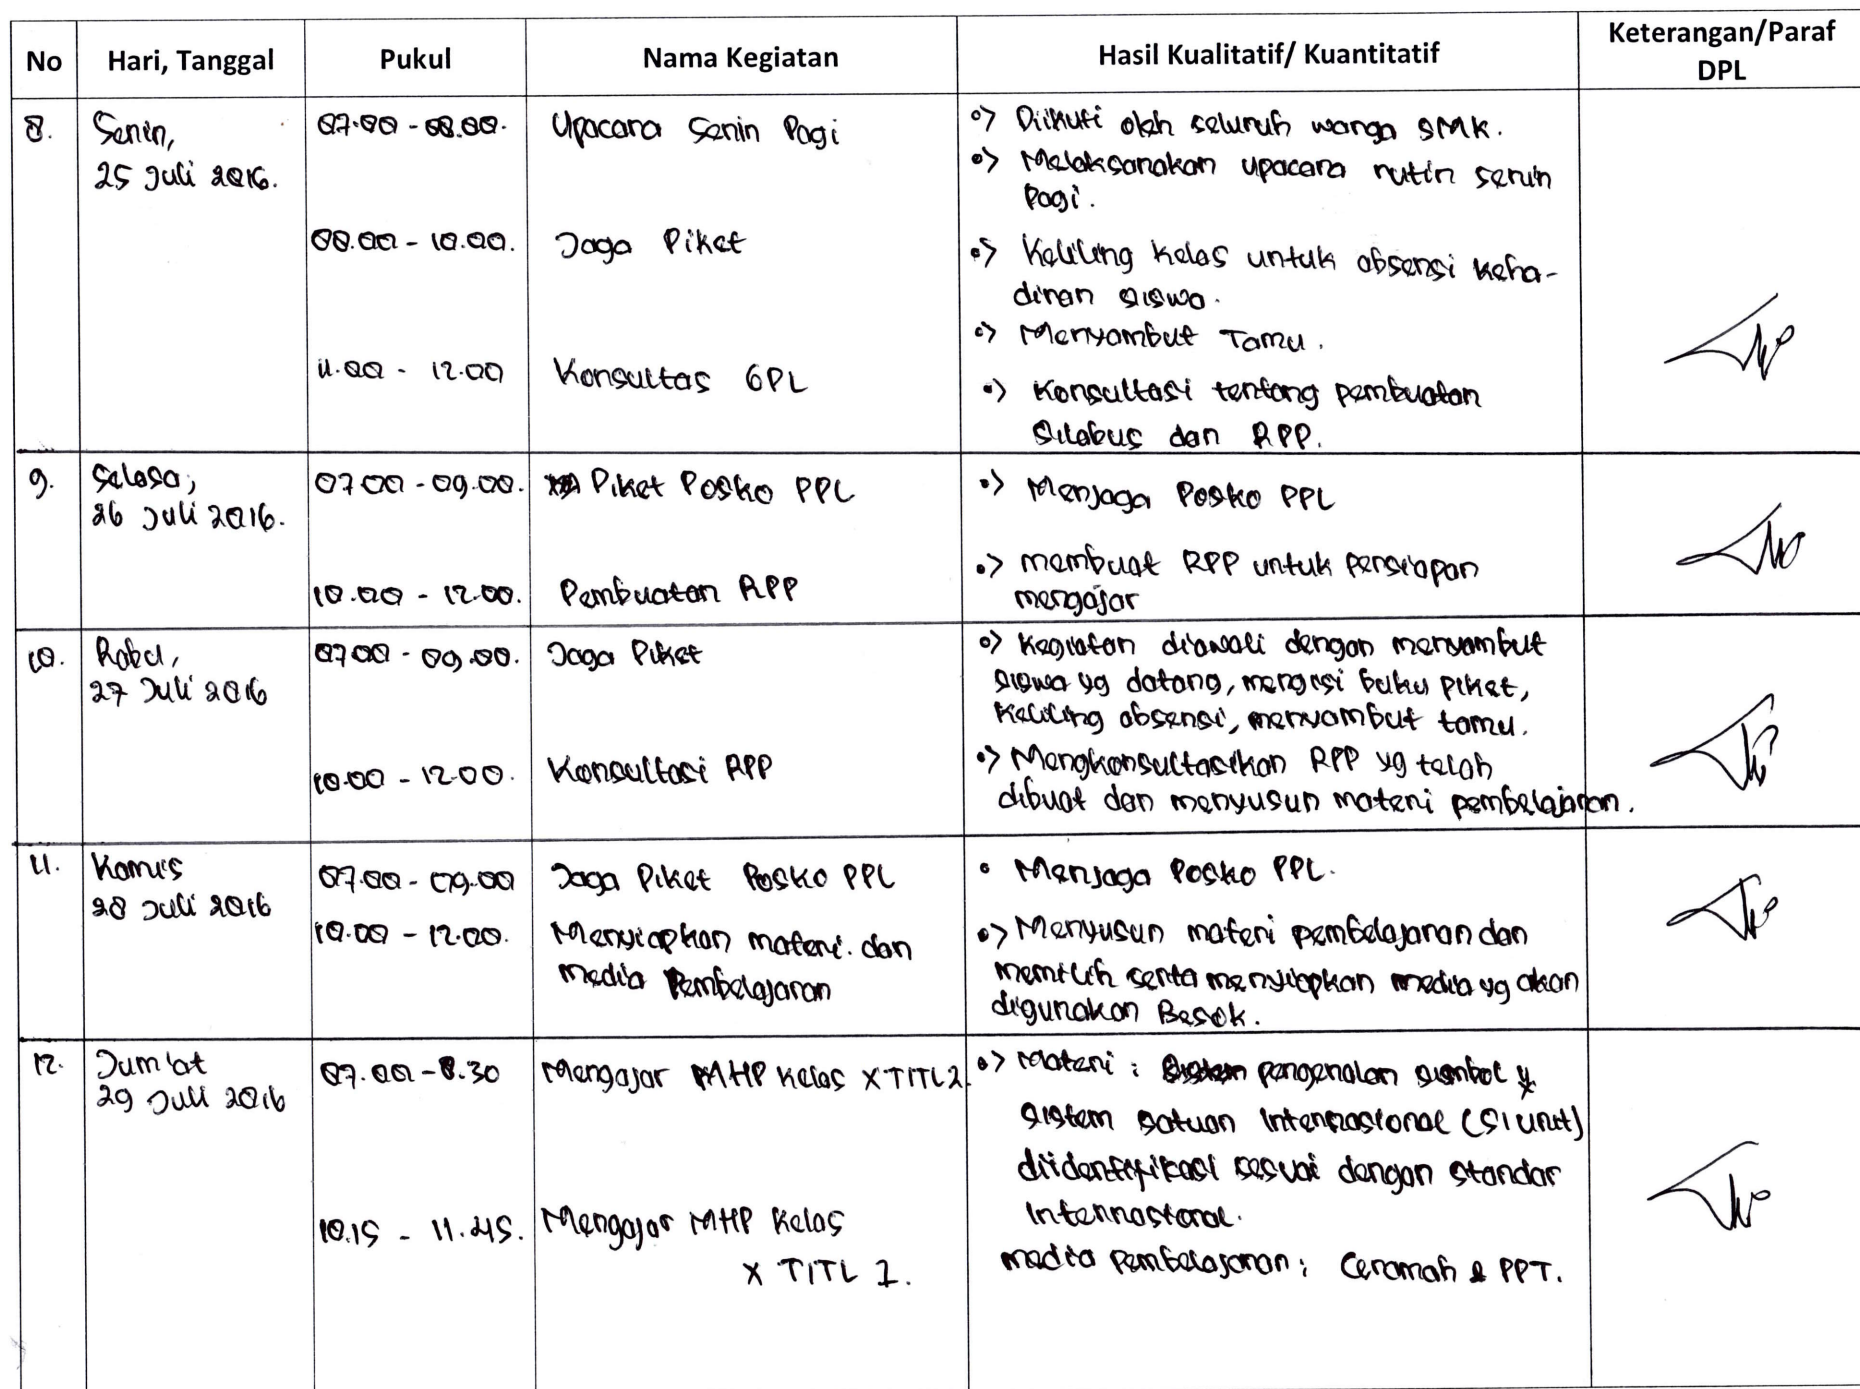 No Hari, Tanggal Pukul Nama Kegiatan Hasil Kualitatif/ Kuantitatif Keterangan/Paraf DPL
8. Senin, 07.00 - 08.00. Upacara Senin Pagi •> Diikuti oleh seluruh warga SMK.
25 Juli 2016. •> Melaksanakan upacara rutin senin
Pagi.
08.00 - 10.00. Jaga Piket •> Keliling kelas untuk absensi keha-
diran siswa.
•> Menyambut Tamu.
11.00 - 12.00 Konsultas GPL •> Konsultasi tentang pembuatan
Silabus dan RPP.
9. Selasa, 07.00 - 09.00. Piket Posko PPL •> Menjaga Posko PPL
26 Juli 2016.
10.00 - 12.00. Pembuatan RPP •> membuat RPP untuk persiapan
mengajar
10. Rabu, 07.00 - 09.00. Jaga Piket •> Kegiatan diawali dengan menyambut
27 Juli 2016 siswa yg datang, mengisi buku piket,
Keliling absensi, menyambut tamu.
10.00 - 12.00. Konsultasi RPP •> Mengkonsultasikan RPP yg telah
dibuat dan menyusun materi pembelajaran.
11. Kamis 07.00 - 09.00 Jaga Piket Posko PPL • Menjaga Posko PPL.
28 Juli 2016
10.00 - 12.00. Menyiapkan materi. dan •> Menyusun materi pembelajaran dan
media Pembelajaran memilih serta menyiapkan media yg akan
digunakan Besok.
12. Jum'at 07.00 - 8.30 Mengajar MHP Kelas X TITL 2. •> Materi : pengenalan simbol
29 Juli 2016 sistem satuan Internasional (SI unit)
diidentifikasi sesuai dengan standar
Internasional.
10.15 - 11.45. Mengajar MHP Kelas
X TITL 1. media pembelajaran : Ceramah & PPT.